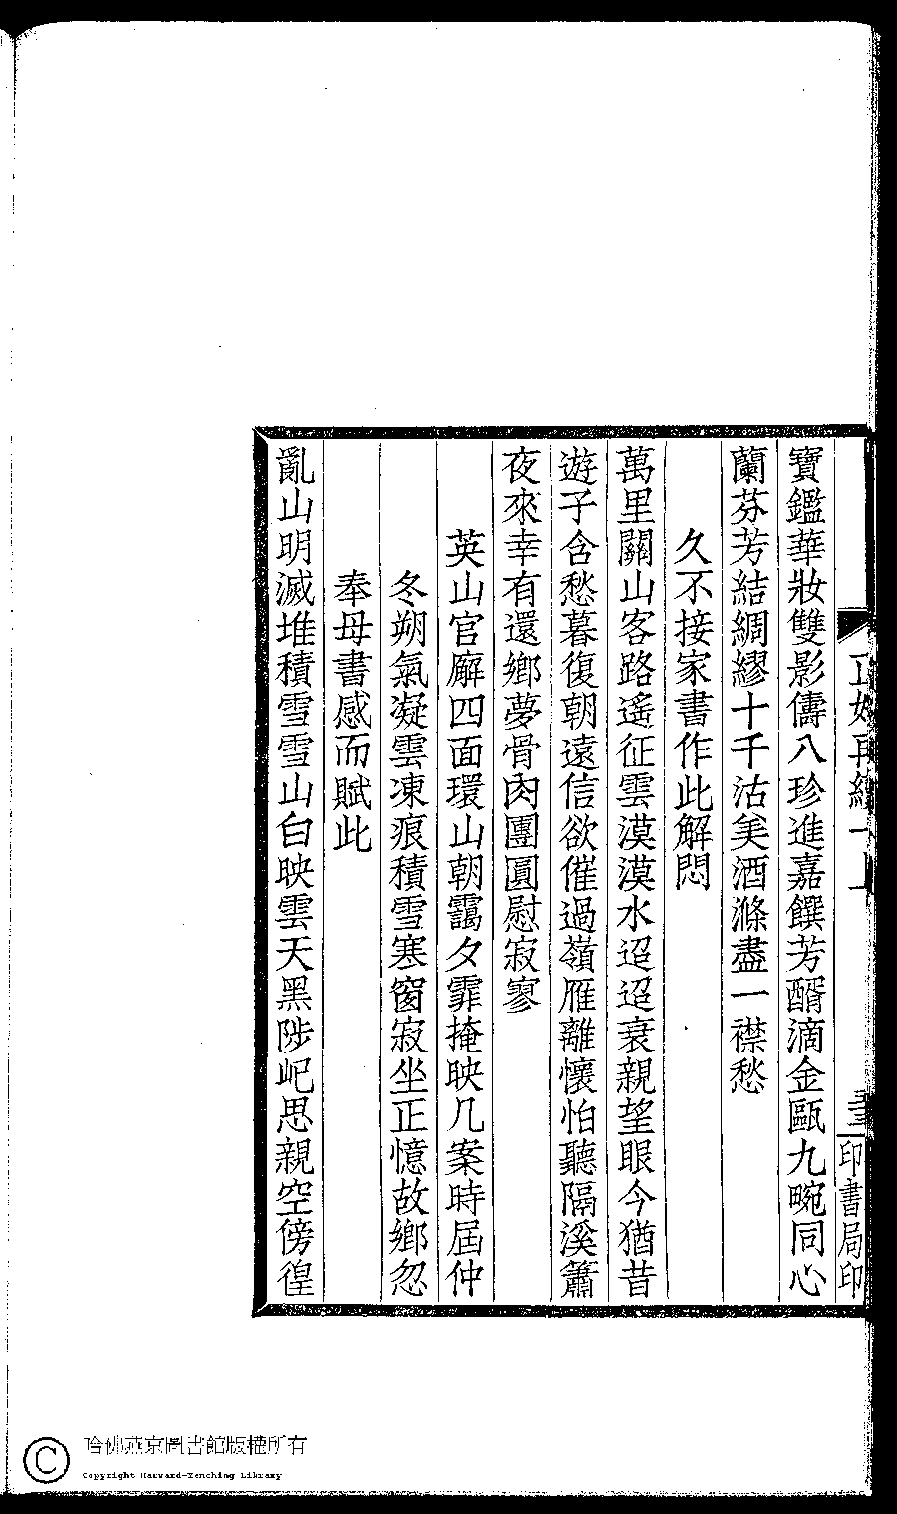 寶鑑華妝雙影儔八珍進嘉饌芳醑滴金甌九畹同心
蘭芬芳結綢繆十千沽美酒滌盡一襟愁
久不接家書作此解悶
萬里關山客路遙征雲漠漠水迢迢衰親望眼今猶昔
遊子含愁暮復朝遠信欲催過嶺雁離懷怕聽隔溪簫
夜來幸有還鄉夢骨肉團圓慰寂寥
英山官廨四面環山朝靄夕霏掩映几案時屆仲
冬朔氣凝雲凍痕積雪寒窗寂坐正憶故鄉忽
奉母書感而賦此
亂山明滅堆積雪雪山白映雲天黑陟屺思親空傍徨
印書局印
哈佛燕京圖書館版權所有
Copyright Harvard-Yenching Library